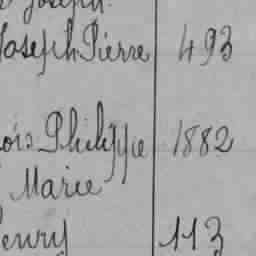 Joseph
Joseph Pierre 493
ois Philippe 1882
Marie
Henry 113